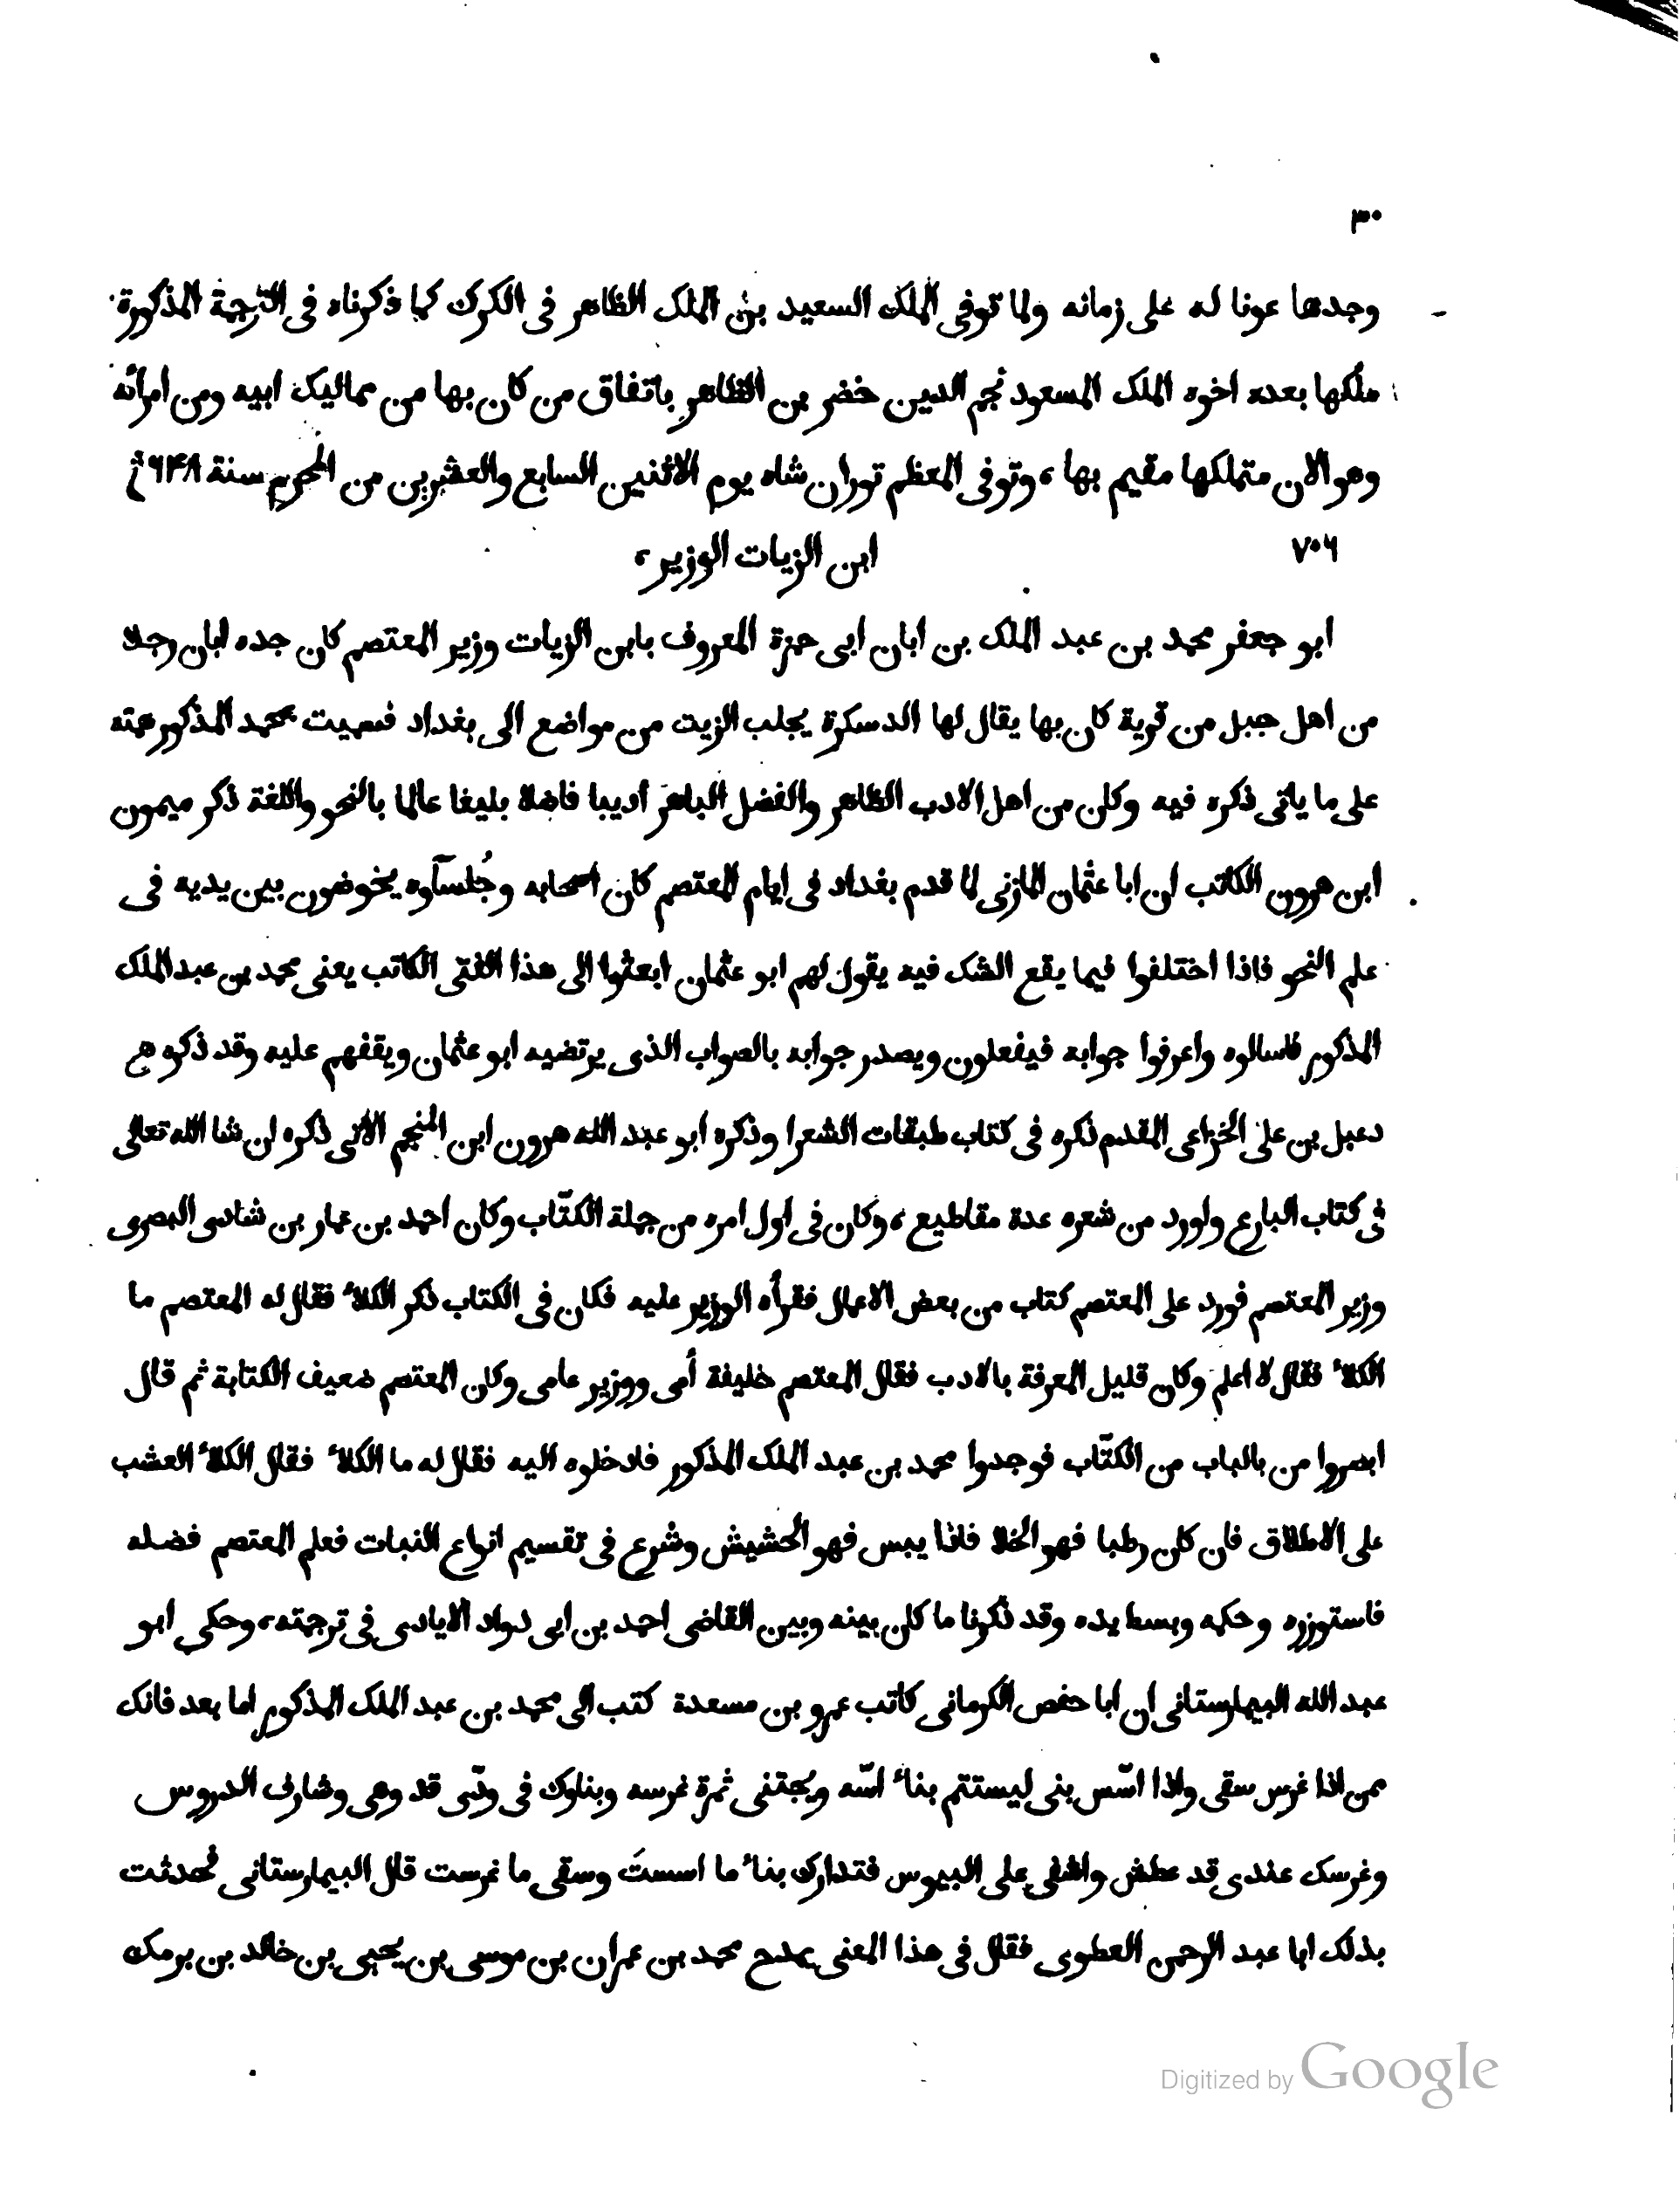 ٣٠
وجدها عونا له على زمانه ولما توفى الملك السعيد بن الملك الظاهر فى الكرك كما ذكرناه فى الترجمة المذكورة
ملكها بعده اخوه الملك المسعود نجم الدين خضر بن الظاهر باتفاق من كان بها من مماليك ابيه ومن امرائه
وهو الان متملكها مقيم بها، وتوفى المعظم توران شاه يوم الاثنين السابع والعشرين من المحرم سنة ٦۴٨
٧٠٦ ابن الزيات الوزير،
ابو جعفر محمد بن عبد الملك بن ابان ابى حمزة المعروف بابن الزيات وزير المعتصم كان جده ابان رجلا
من اهل جبل من قرية كان بها يقال لها الدسكرة يجلب الزيت من مواضع الى بغداد فسميت بمحمد المذكور همته
على ما ياتى ذكره فيه وكان من اهل الادب الظاهر والفضل الباهر اديبا فاضلا بليغا عالما بالنحو واللغة ذكر ميمون
ابن هرون الكاتب ان ابا عثمان المازنى لما قدم بغداد فى ايام المعتصم كان اصحابه وجُلسآوه يخوضون بين يديه فى
علم النحو فاذا اختلفوا فيما يقع الشك فيه يقول لهم ابو عثمان ابعثوا الى هذا الفتى الكاتب يعنى محمد بن عبد الملك
المذكور فاسالوه واعرفوا جوابه فيفعلون ويصدر جوابه بالصواب الذى يرتضيه ابو عثمان ويقفهم عليه وقد ذكره
دعبل بن على الخزاعى المقدم ذكره فى كتاب طبقات الشعرا وذكره ابو عبد الله هرون ابن المنجم الاتى ذكره ان شا الله تعالى
فى كتاب البارع واورد من شعره عدة مقاطيع، وكان فى اول امره من جملة الكتّاب وكان احمد بن عمار بن شاذى البصرى
وزير المعتصم فورد على المعتصم كتاب من بعض الاعمال فقرأه الوزير عليه فكان فى الكتاب ذكر الكلأ فقال له المعتصم ما
الكلأ فقال لا اعلم وكان قليل المعرفة بالادب فقال المعتصم خليفة أمى ووزير عامى وكان المعتصم ضعيف الكتابة ثم قال
ابصروا من بالباب من الكتّاب فوجدوا محمد بن عبد الملك المذكور فادخلوه اليه فقال له ما الكلأ فقال الكلأ العشب
على الاطلاق فان كان رطبا فهو الخلا فاذا يبس فهو الحشيش وشرع فى تقسيم انواع النبات فعلم المعتصم فضله
فاستوزره وحكمه وبسط يده وقد ذكرنا ما كان بينه وبين القاضى احمد بن ابى دواد الايادى فى ترجمته، وحكى ابو
عبد الله البيمارستانى ان ابا حفص الكرمانى كاتب عمرو بن مسعدة كتب الى محمد بن عبد الملك المذكور اما بعد فانك
ممن اذا غرس سقى واذا اسّس بنى ليستتم بناء اسّه ويجتنى ثمرة غرسه وبناوك فى ودّى قد وهى وشارف الدروس
وغرسك عندى قد عطش واشفى على اليبوس فتدارك بناء ما اسستَ وسقى ما غرست قال البيمارستانى فحدثت
بذلك ابا عبد الرحمن العطوى فقال فى هذا المعنى يمدح محمد بن عمران بن موسى بن يحيى بن خالد بن برمك
Digitized by Google